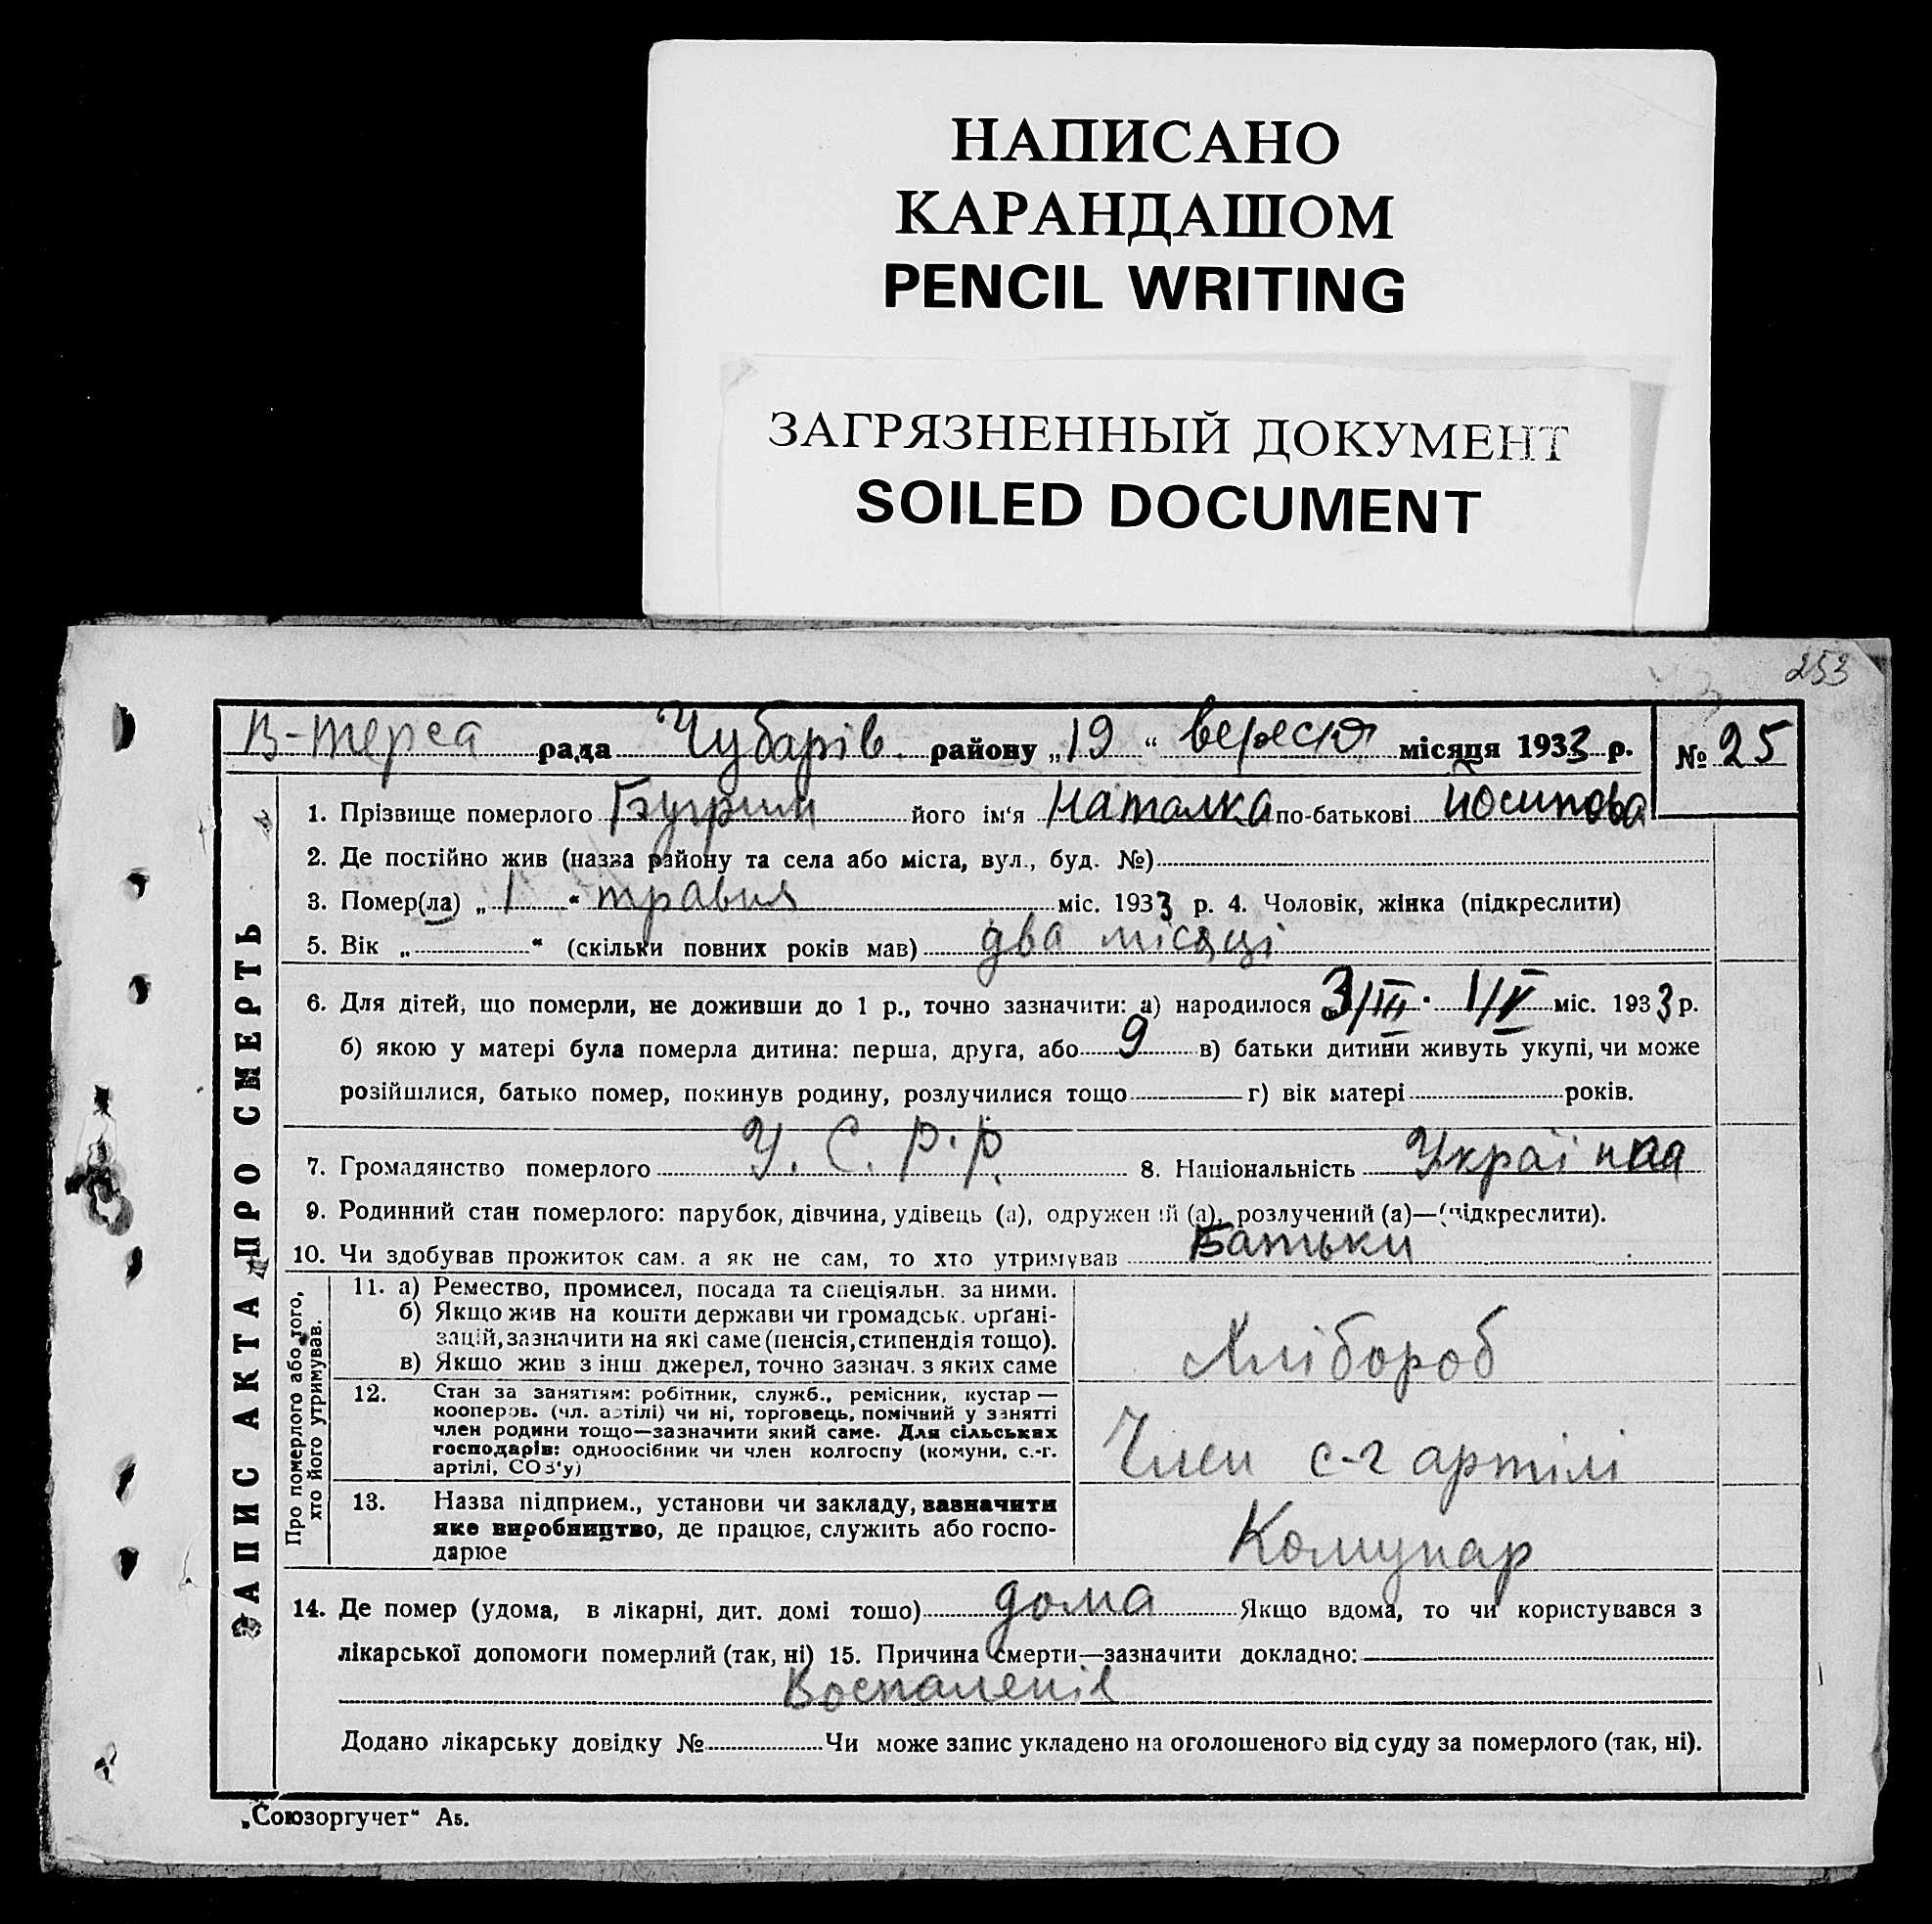 НАПИСАНО
КАРАНДАШОМ
PENCIL WRITING
ЗАГРЯЗНЕННЫЙ ДОКУМЕНТ
SOILED DOCUMENT
253
В-терса рада Чубарів району „19“ вересня місяця 1933 р. № 25
ЗАПИС АКТА ПРО СМЕРТЬ
1. Прізвище померлого Бугрим його ім'я Наталка по-батькові Йосипова
2. Де постійно жив (назва району та села або міста, вул., буд. №)
3. Помер(ла) „1“ травня міс. 1933 р. 4. Чоловік, жінка (підкреслити)
5. Вік „ “ (скільки повних років мав) два місяці
6. Для дітей, що померли, не доживши до 1 р., точно зазначити: а) народилося 3/III. 1/V міс. 1933 р.
б) якою у матері була померла дитина: перша, друга, або 9 в) батьки дитини живуть укупі, чи може
розійшлися, батько помер, покинув родину, розлучилися тощо г) вік матері років.
7. Громадянство померлого У. С. Р. Р. 8. Національність Українка
9. Родинний стан померлого: парубок, дівчина, удівець (а), одружений (а), розлучений (а)—(підкреслити).
10. Чи здобував прожиток сам. а як не сам, то хто утримував Батьки
Про померлого або того,
хто його утримував.
11. а) Ремество, промисел, посада та спеціяльн. за ними.
б) Якщо жив на кошти держави чи громадськ. органі-
зацій, зазначити на які саме (пенсія, стипендія тощо).
в) Якщо жив з інш. джерел, точно зазнач. з яких саме
Хлібороб
12. Стан за заняттям: робітник, служб., ремісник, кустар —
кооперов. (чл. артілі) чи ні, торговець, помічний у занятті
член родини тощо—зазначити який саме. Для сільських
господарів: одноосібник чи член колгоспу (комуни, с.-г.
артілі, СОЗ'у)
Член с-г артілі
13. Назва підприєм., установи чи закладу, зазначити
яке виробництво, де працює, служить або госпо-
дарює
Комунар
14. Де помер (удома, в лікарні, дит. домі тошо) дома Якщо вдома, то чи користувався з
лікарської допомоги померлий (так, ні) 15. Причина смерти—зазначити докладно:
Воспаленіє
Додано лікарську довідку № Чи може запис укладено на оголошеного від суду за померлого (так, ні).
„Союзоргучет“ А5.